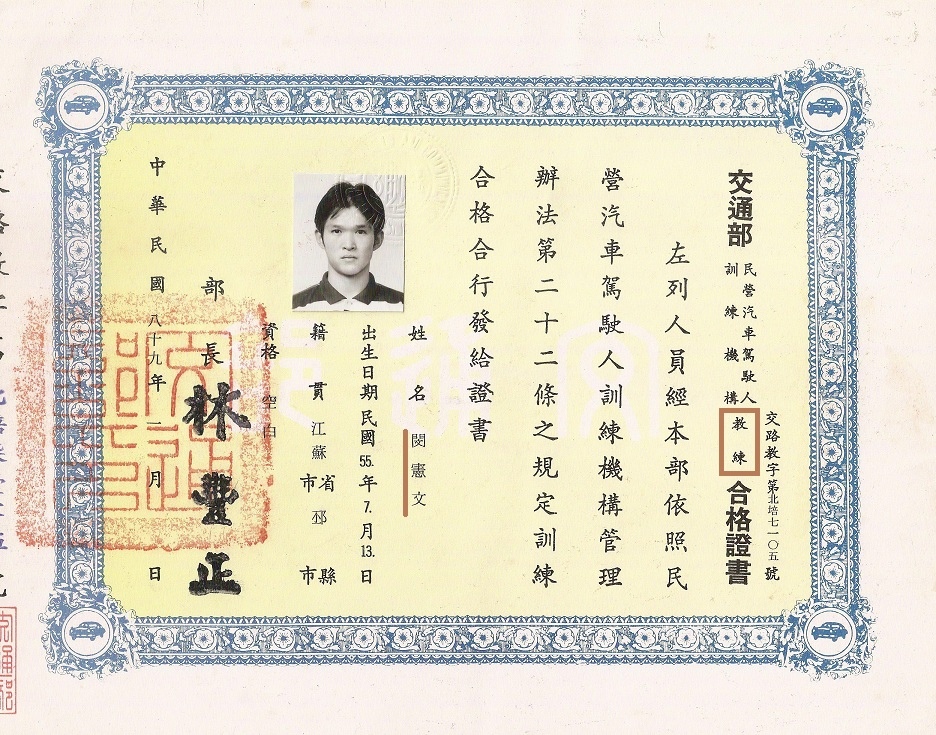 交路教字第北培七一〇五號
交通部民營汽車駕駛人訓練機構教練合格證書
左列人員經本部依照民
營汽車駕駛人訓練機構管理
辦法第二十二條之規定訓練
合格合行發給證書
姓名 閔憲文
出生日期民國55.年7.月13.日
籍貫 江蘇省市 邳縣市
資格 空白
部長 林豐正
中華民國八十九年一月 日